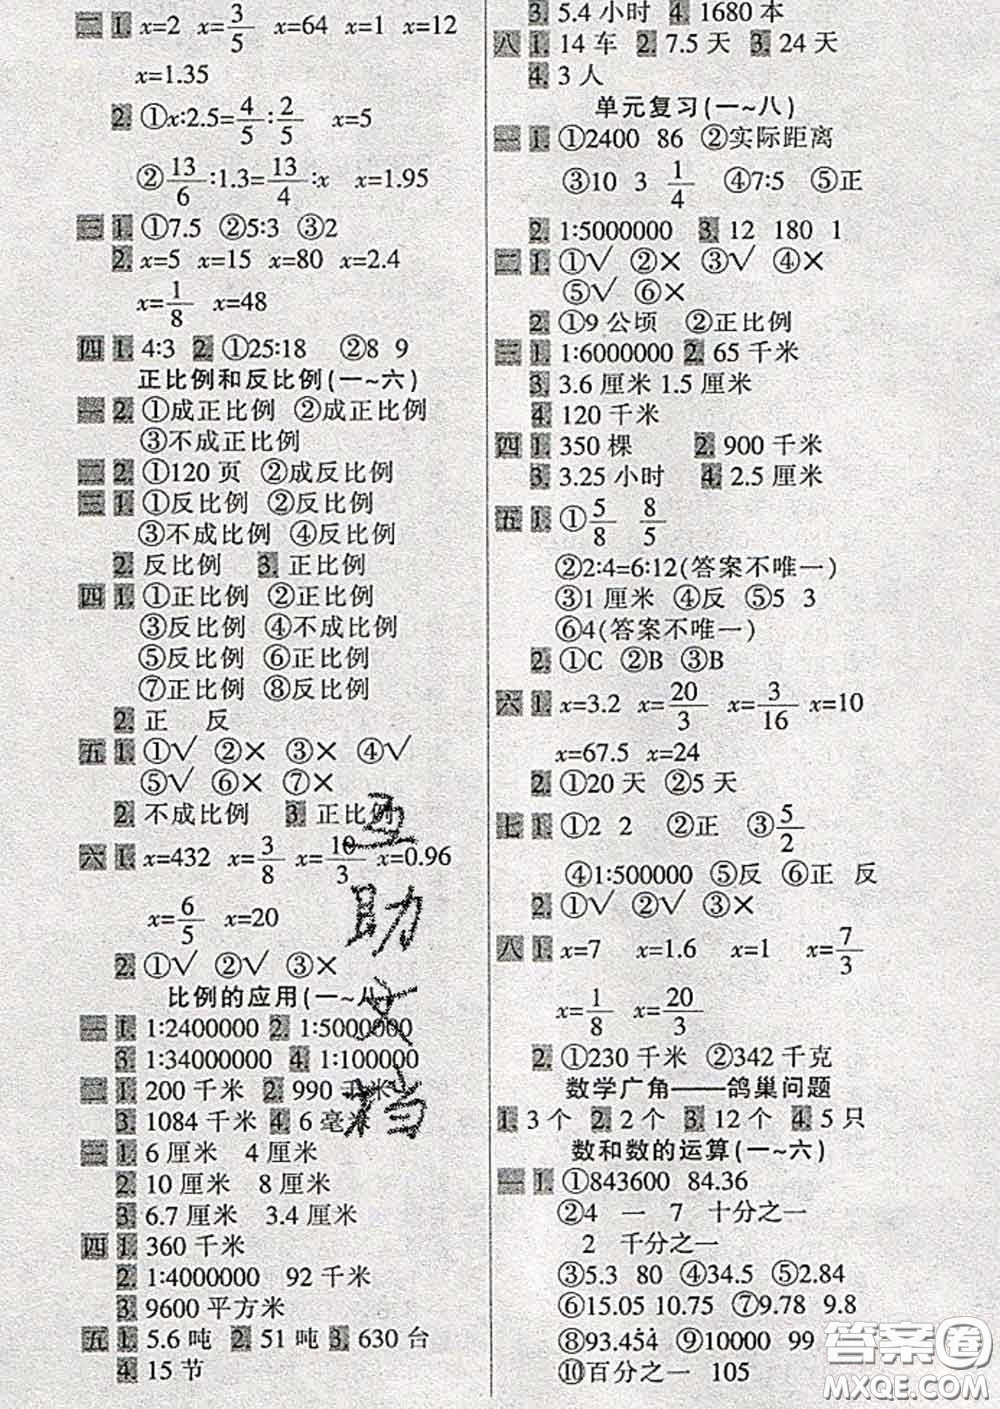 二 1. x=2 x=3/5 x=64 x=1 x=12
x=1.35
2. ①x∶2.5=4/5∶2/5 x=5
②13/6∶1.3=13/4∶x x=1.95
三 1. ①7.5 ②5∶3 ③2
2. x=5 x=15 x=80 x=2.4
x=1/8 x=48
四 1. 4∶3 2. ①25∶18 ②8 9
正比例和反比例(一~六)
一 2. ①成正比例 ②成正比例
③不成正比例
二 2. ①120 页 ②成反比例
三 1. ①反比例 ②反比例
③不成比例 ④反比例
2. 反比例 3. 正比例
四 1. ①正比例 ②正比例
③反比例 ④不成比例
⑤反比例 ⑥正比例
⑦正比例 ⑧反比例
2. 正 反
五 1. ①√ ②× ③× ④√
⑤√ ⑥× ⑦×
2. 不成比例 3. 正比例
六 1. x=432 x=3/8 x=10/3 x=0.96
x=6/5 x=20
2. ①√ ②√ ③×
比例的应用(一~八)
一 1. 1∶2400000 2. 1∶5000000
3. 1∶34000000 4. 1∶100000
二 1. 200 千米 2. 990 千米
3. 1084 千米 4. 6 毫米
三 1. 6 厘米 4 厘米
2. 10 厘米 8 厘米
3. 6.7 厘米 3.4 厘米
四 1. 360 千米
2. 1∶4000000 92 千米
3. 9600 平方米
五 1. 5.6 吨 2. 51 吨 3. 630 台
4. 15 节
3. 5.4 小时 4. 1680 本
八 1. 14 车 2. 7.5 天 3. 24 天
4. 3 人
单元复习(一~八)
一 1. ①2400 86 ②实际距离
③10 3 1/4 ④7∶5 ⑤正
2. 1∶5000000 3. 12 180 1
二 1. ①√ ②× ③√ ④×
⑤√ ⑥×
2. ①9 公顷 ②正比例
三 1. 1∶6000000 2. 65 千米
3. 3.6 厘米 1.5 厘米
4. 120 千米
四 1. 350 棵 2. 900 千米
3. 3.25 小时 4. 2.5 厘米
五 1. ①5/8 8/5
②2∶4=6∶12(答案不唯一)
③1 厘米 ④反 ⑤5 3
⑥4(答案不唯一)
2. ①C ②B ③B
六 1. x=3.2 x=20/3 x=3/16 x=10
x=67.5 x=24
2. ①20 天 ②5 天
七 1. ①2 2 ②正 ③5/2
④1∶500000 ⑤反 ⑥正 反
2. ①√ ②√ ③×
八 1. x=7 x=1.6 x=1 x=7/3
x=1/8 x=20/3
2. ①230 千米 ②342 千克
数学广角——鸽巢问题
1. 3 个 2. 2 个 3. 12 个 4. 5 只
数和数的运算(一~六)
一 1. ①843600 84.36
②4 一 7 十分之一
2 千分之一
③5.3 80 ④34.5 ⑤2.84
⑥15.05 10.75 ⑦9.78 9.8
⑧93.4̇5̇4̇ ⑨10000 99
⑩百分之一 105
互助文档
答案圈
MXQE.COM